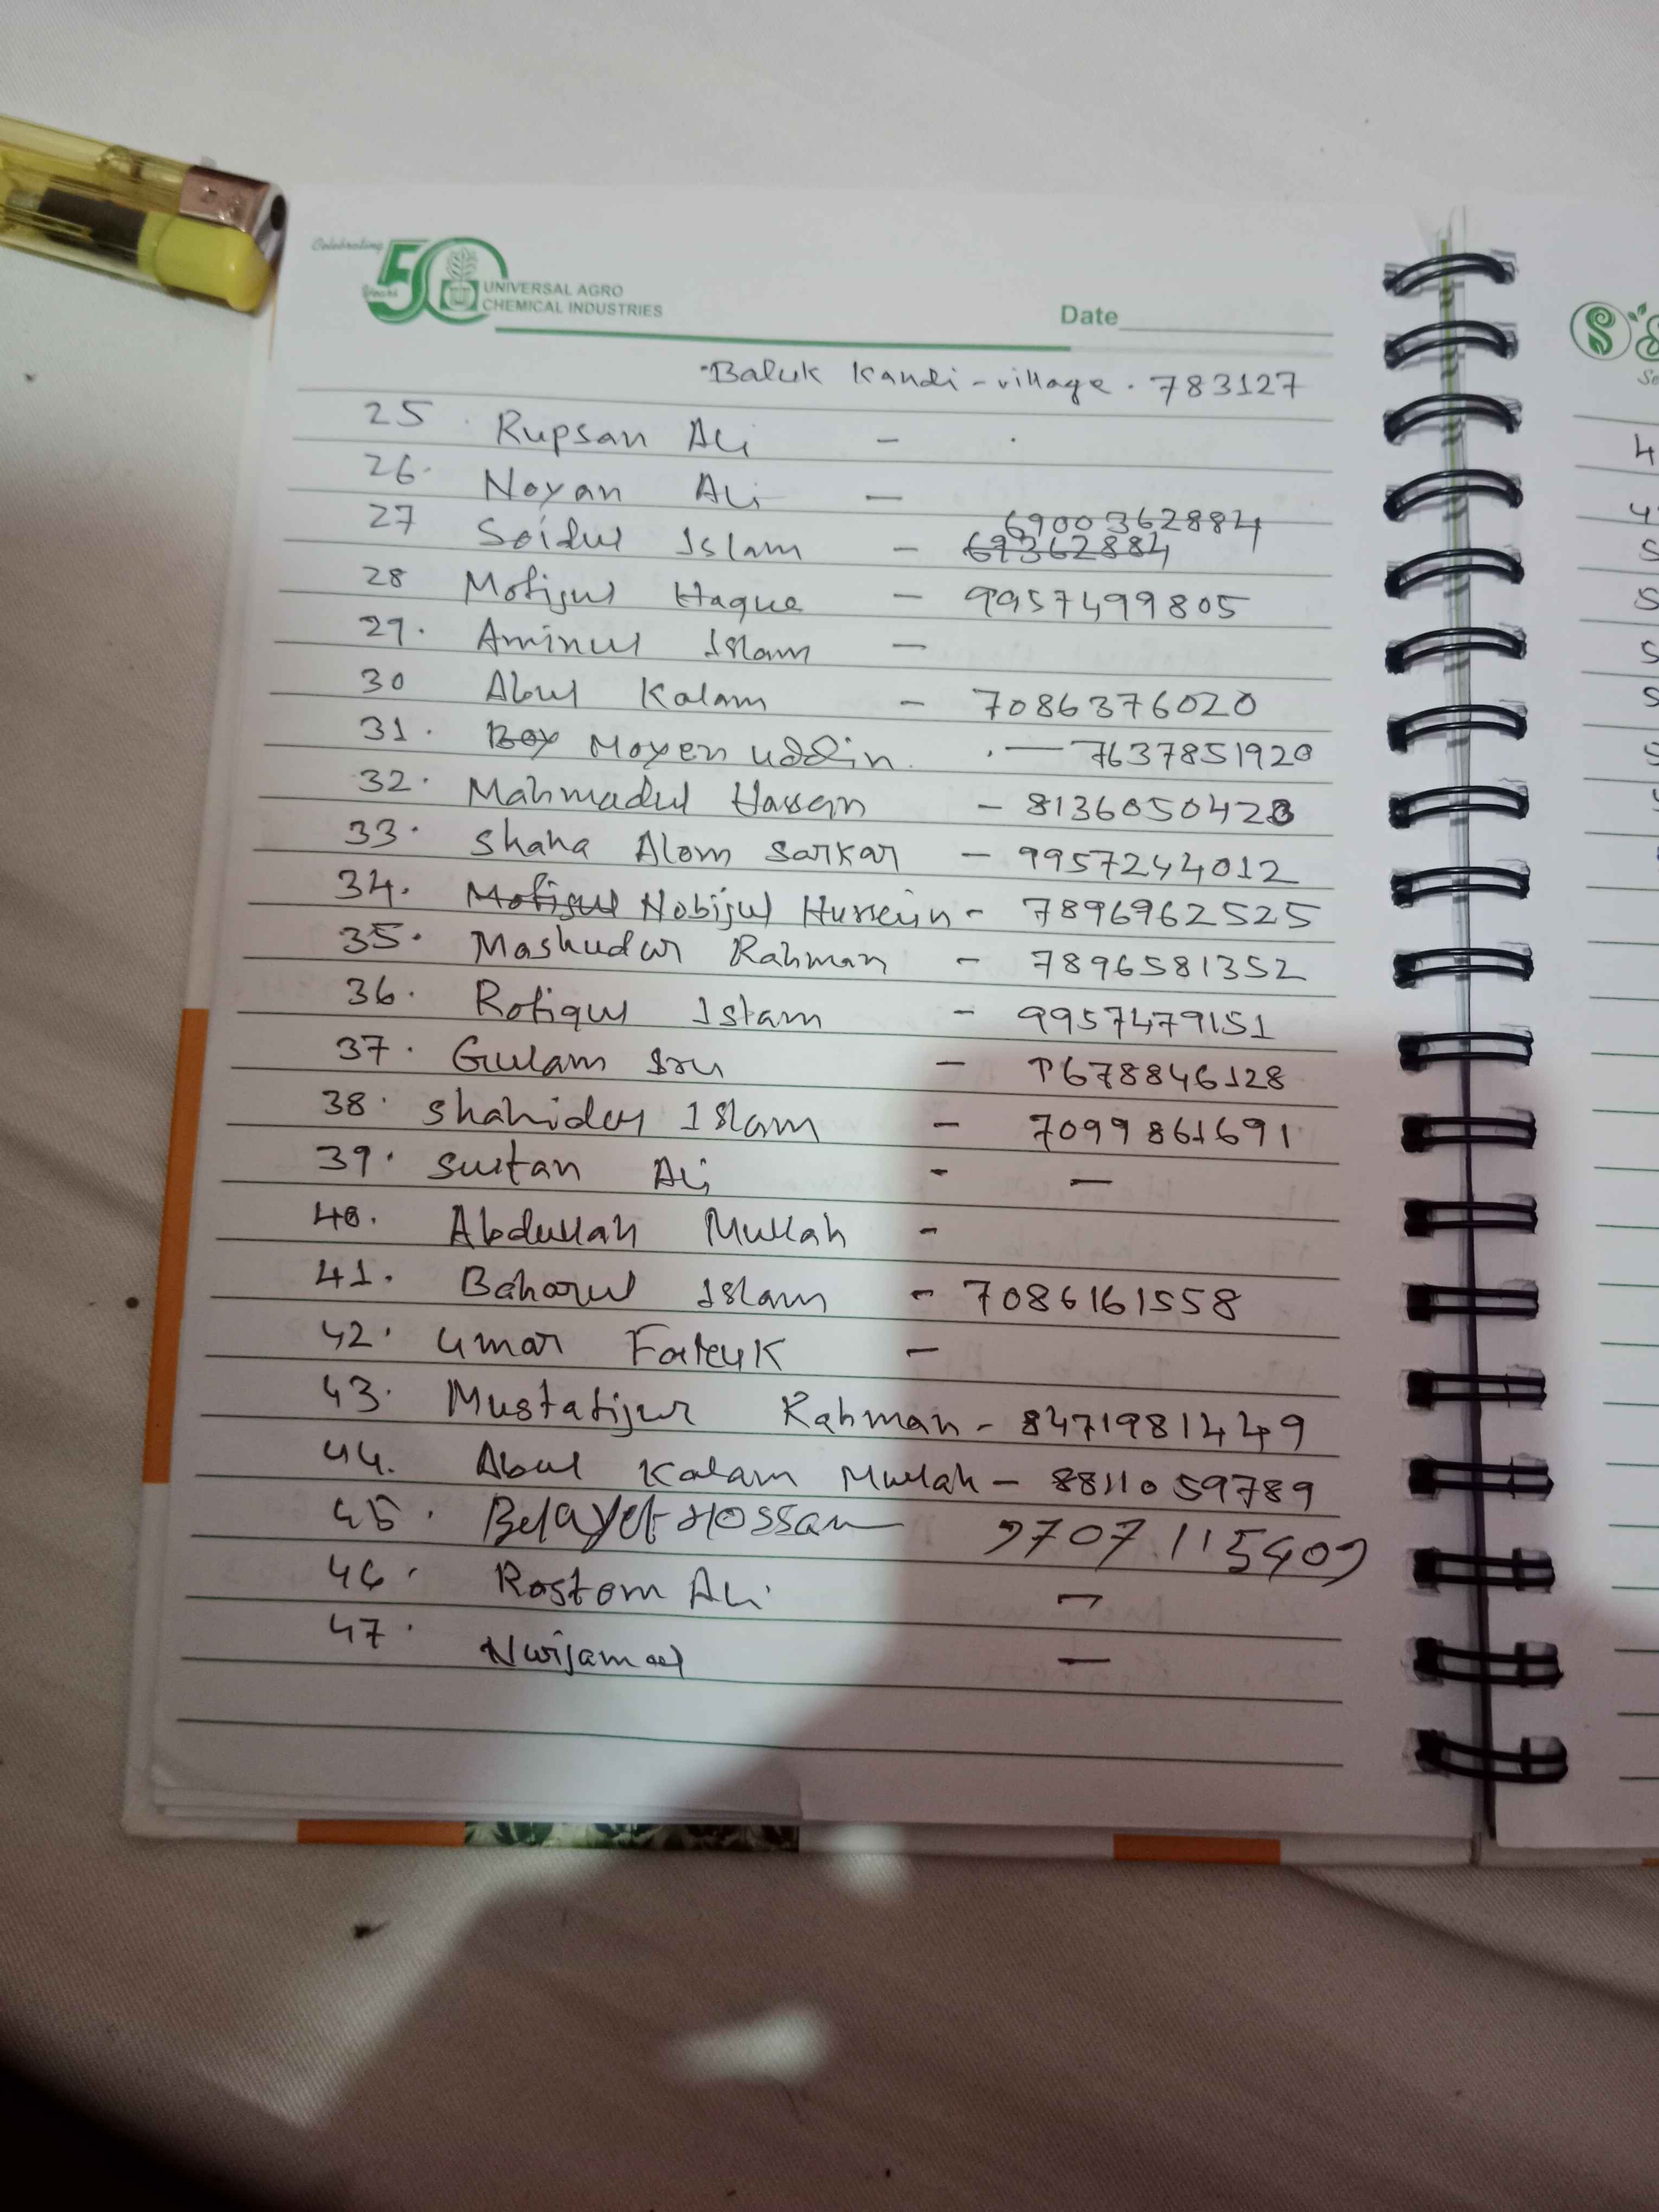 Celebrating
50
Years
UNIVERSAL AGRO
CHEMICAL INDUSTRIES
Date
Baluk Kandi - village. 783127
25. Rupsan Ali -
26. Noyan Ali -
27 Soidul Islam - 69362884 6900362884
28 Mofijul Haque - 9957499805
29. Aminul Islam -
30 Abul Kalam - 7086376020
31. Boy Moyen uddin. - 7637851920
32. Mahmadul Hassan - 813605042
33. Shaha Alom Sarkar - 9957244012
34. Mofijul Nobijul Hussein - 7896962525
35. Mashudar Rahman - 7896581352
36. Rofiqul Islam - 9957479151
37. Gulam - 9678846128
38. Shahidul Islam - 7099861691
39. Sultan Ali - -
40. Abdullah Mullah -
41. Baharul Islam - 7086161558
42. Umar Faruk -
43. Mustafijur Rahman - 8471981449
44. Abul Kalam Mullah - 8811059789
45. Belayet Hossan 9707115409
46. Rostom Ali -
47. Nurjamal -